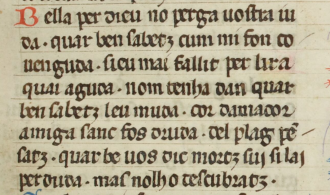 Bella per dieu no perga uostra iu
da · quar ben sabetz cum mi fon co
uenguda · sieu mai fallit per lira
quai aguda · nom tenha dan quar
ben sabetz leu muda · cor damador
amiga sanc fos druda · del plag pē
satz · quar be uos dic mortz sui si lai
perduda · mas nolh o descubratz ·